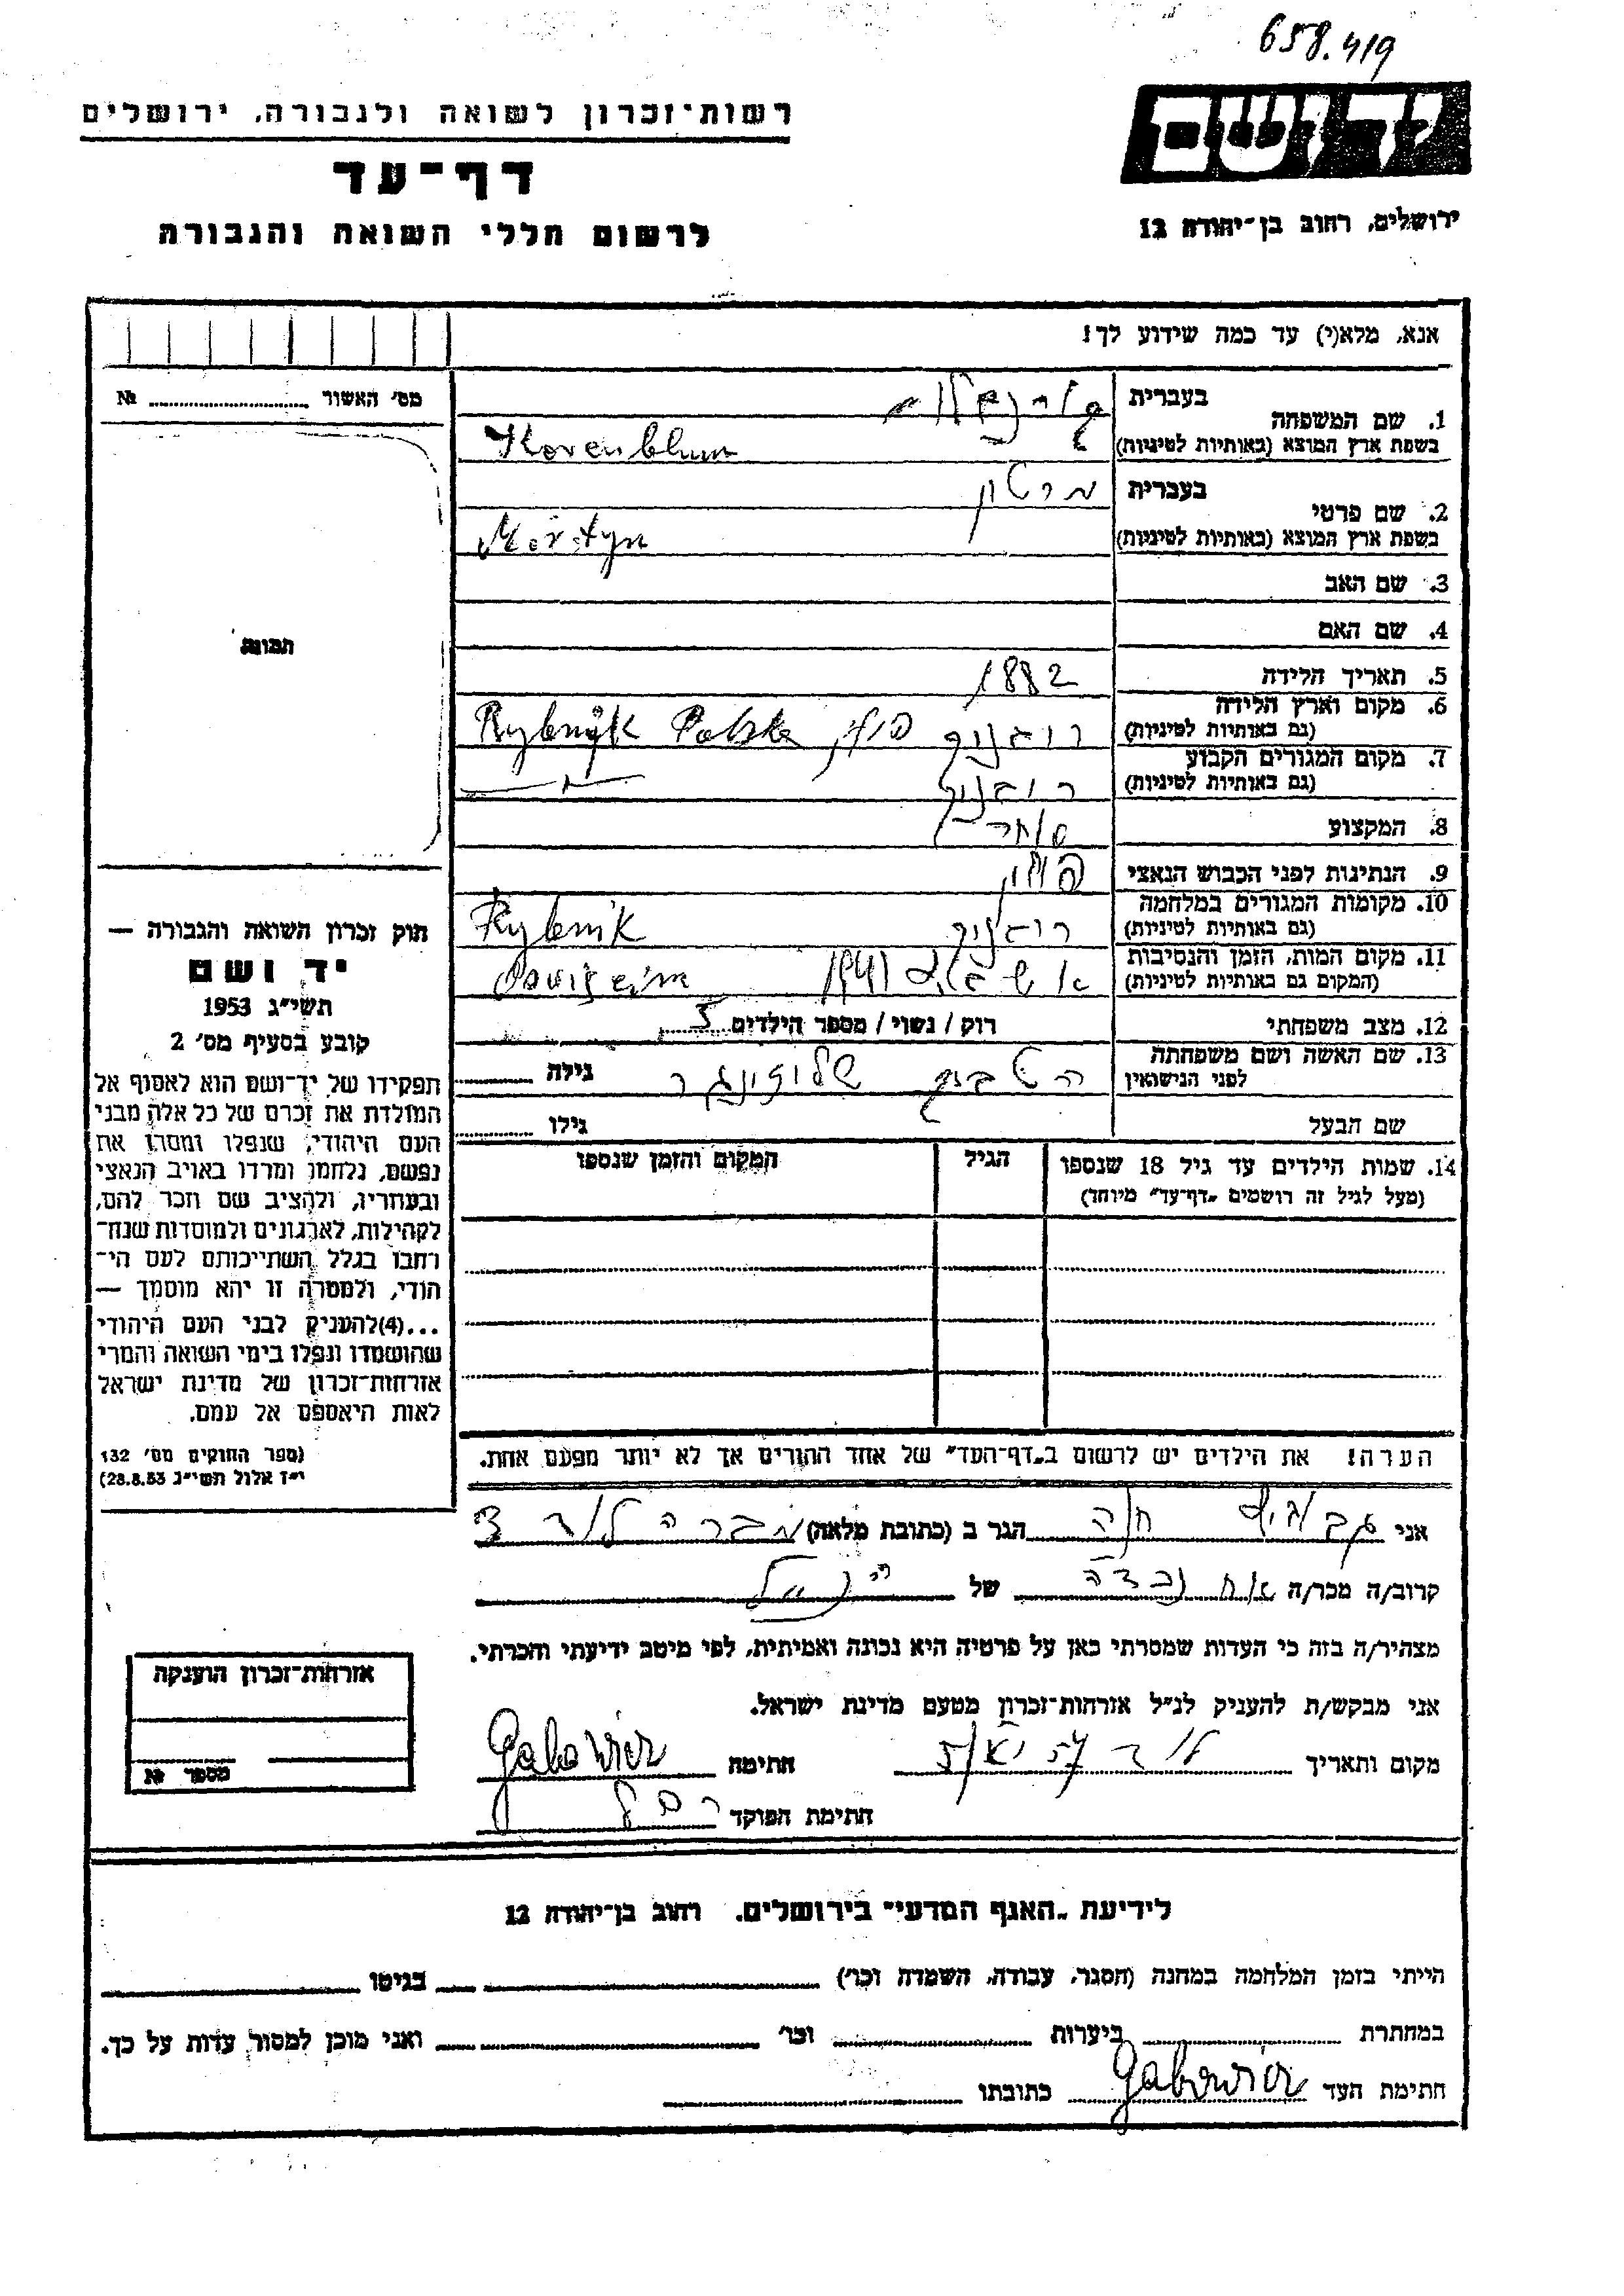 658.419
יד ושם
רשות־זכרון לשואה ולגבורה, ירושלים
דף־עד
לרשום חללי השואה והגבורה
ירושלים, רחוב בן־יהודה 12
אנא, מלא(י) עד כמה שידוע לך!
מס׳ האשור № ........
בעברית
1. שם המשפחה
בשפת ארץ המוצא (באותיות לטיניות) Korenblum
בעברית מרטין
2. שם פרטי
בשפת ארץ המוצא (באותיות לטיניות) Martyn
3. שם האב
4. שם האם
תמונה
5. תאריך הלידה 1882
6. מקום וארץ הלידה
(גם באותיות לטיניות) ריבניק פולין Rybnik Polska
7. מקום המגורים הקבוע
(גם באותיות לטיניות) ריבניק
8. המקצוע סוחר
9. הנתינות לפני הכבוש הנאצי פולין
10. מקומות המגורים במלחמה
(גם באותיות לטיניות) ריבניק Rybnik
11. מקום המות, הזמן והנסיבות
(המקום גם באותיות לטיניות) 1941
12. מצב משפחתי רוק / נשוי / מספר הילדים 5
13. שם האשה ושם משפחתה
לפני הנישואין גילה ........
שם הבעל גילו ........
14. שמות הילדים עד גיל 18 שנספו
(מעל לגיל זה רושמים „דף־עד״ מיוחד)
הגיל
המקום והזמן שנספו
חוק זכרון השואה והגבורה —
יד ושם
תשי״ג 1953
קובע בסעיף מס׳ 2
תפקידו של יד־ושם הוא לאסוף אל
המולדת את זכרם של כל אלה מבני
העם היהודי, שנפלו ומסרו את
נפשם, נלחמו ומרדו באויב הנאצי
ובעוזריו, ולהציב שם וזכר להם,
לקהילות, לארגונים ולמוסדות שנח־
רבו בגלל השתייכותם לעם הי־
הודי, ולמטרה זו יהא מוסמך —
...(4)להעניק לבני העם היהודי
שהושמדו ונפלו בימי השואה והמרי
אזרחות־זכרון של מדינת ישראל
לאות היאספם אל עמם.
(ספר החוקים מס׳ 132
י״ז אלול תשי״ג 28.8.53)
הערה! את הילדים יש לרשום ב„דף־העד״ של אחד ההורים אך לא יותר מפעם אחת.
אני חנה הגר ב (כתובת מלאה)
קרוב/ה מכר/ה של הנ״ל
מצהיר/ה בזה כי העדות שמסרתי כאן על פרטיה היא נכונה ואמיתית, לפי מיטב ידיעתי והכרתי.
אני מבקש/ת להעניק לנ״ל אזרחות־זכרון מטעם מדינת ישראל.
מקום ותאריך חתימה
חתימת הפוקד
אזרחות־זכרון הוענקה
מספר №
לידיעת „האגף המדעי״ בירושלים, רחוב בן־יהודה 12
הייתי בזמן המלחמה במחנה (הסגר, עבודה, השמדה וכו׳) בגיטו
במחתרת ביערות וכו׳ ואני מוכן למסור עדות על כך.
חתימת העד כתובתו